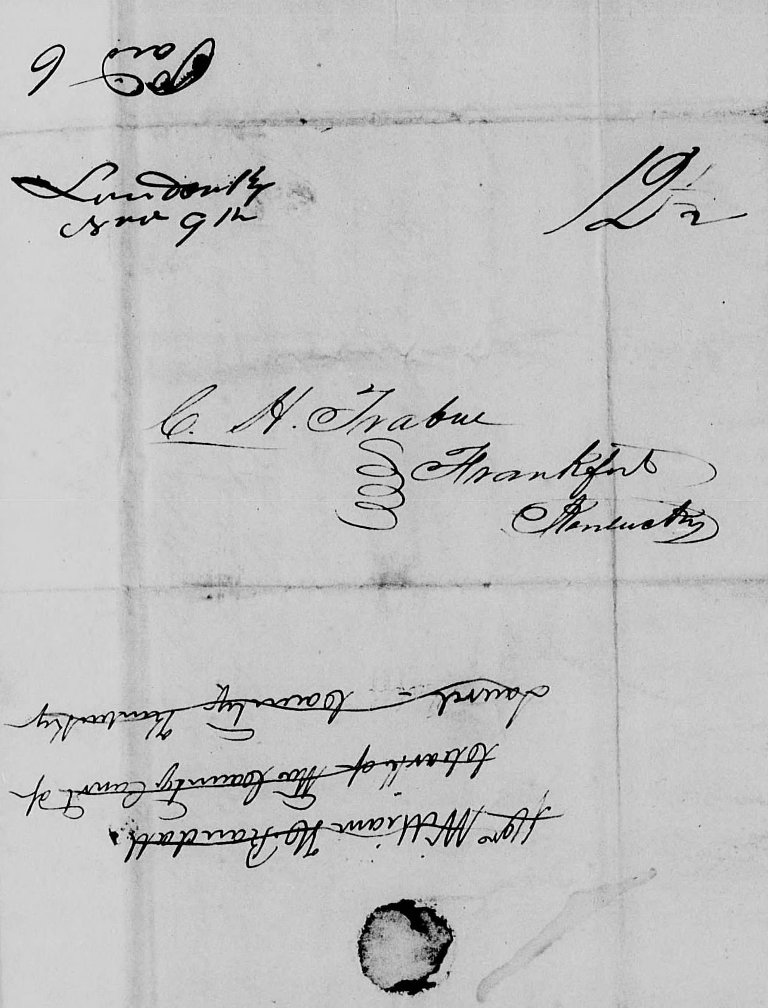 Paid 6
London Ky
Nov 9th
12 1/2
C. H. Trabue
Frankfort
Kentucky
Hon William H Randall
Clark of the County Court of
Laurel County Kentucky